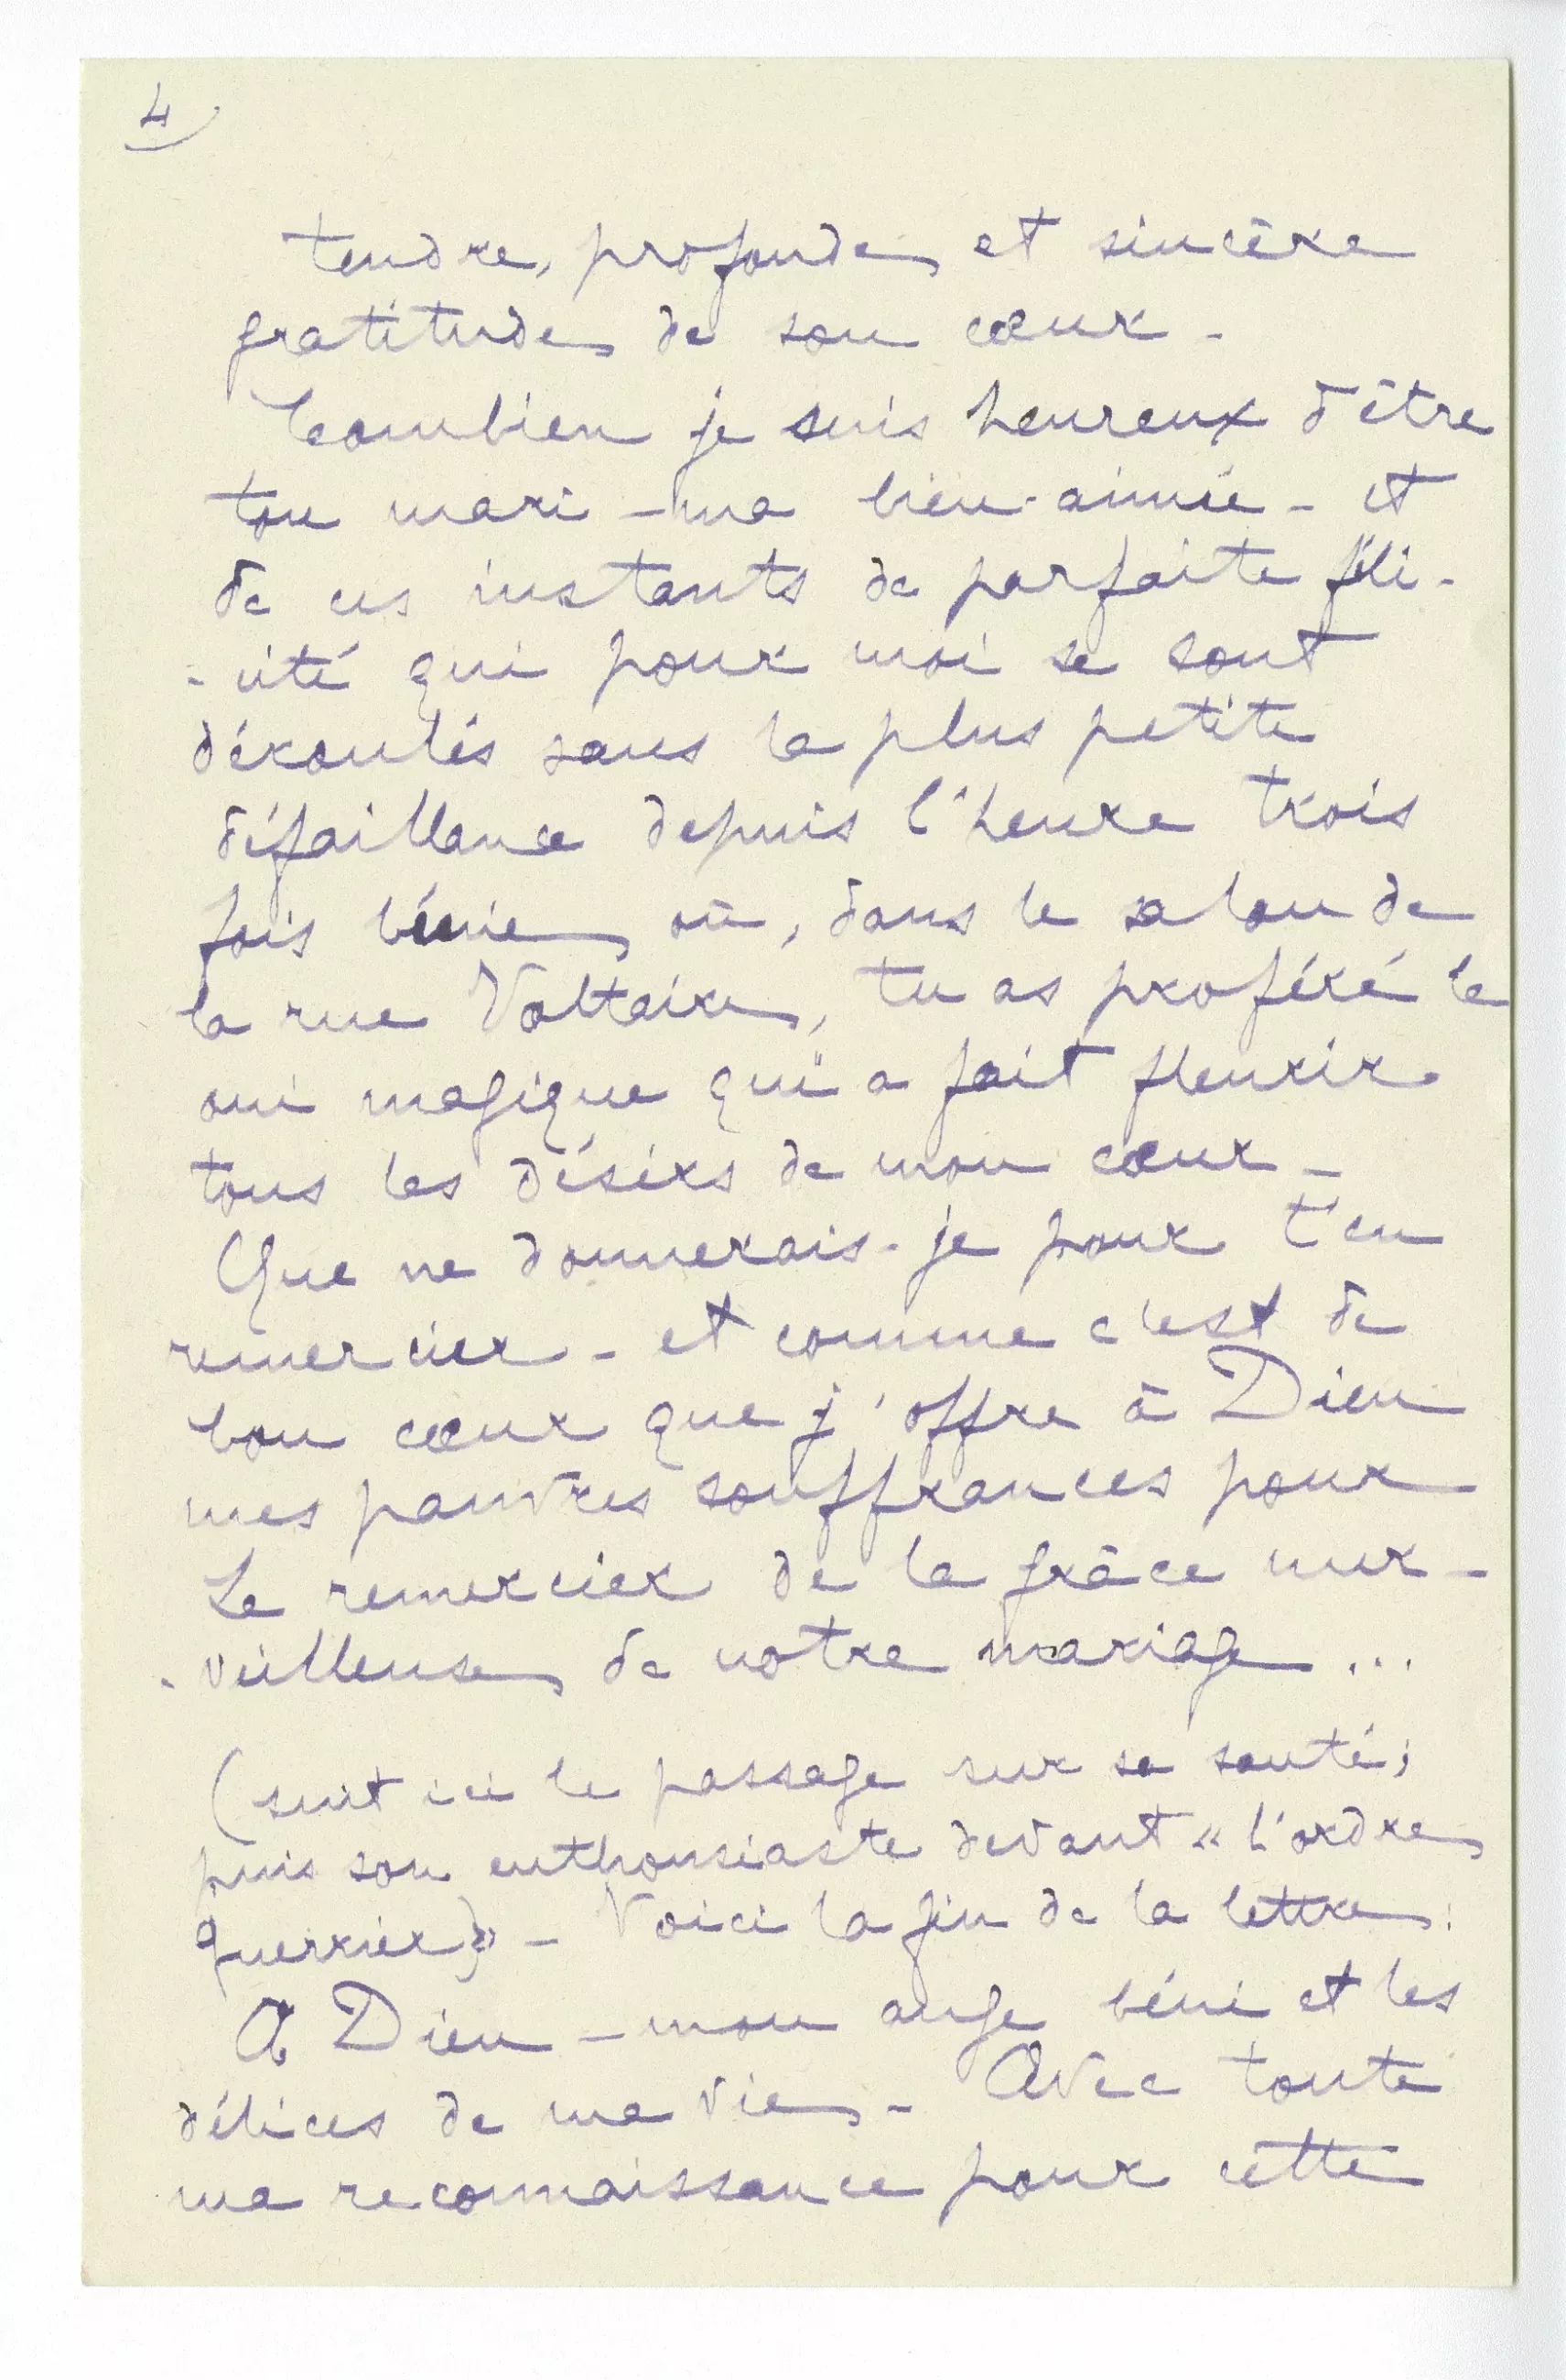 4
tendre, profonde et sincère
gratitude de son cœur -
Combien je suis heureux d'être
ton mari - ma bien-aimée - et
de ces instants de parfaite féli-
-cité qui pour moi se sont
déroulés sans la plus petite
défaillance depuis l'heure trois
fois bénie où, dans le salon de
la rue Voltaire, tu as proféré le
oui magique qui a fait fleurir
tous les désirs de mon cœur -
Que ne donnerais-je pour t'en
remercier - et comme c'est de
bon cœur que j'offre à Dieu
mes pauvres souffrances pour
Le remercier de la grâce mer-
-veilleuse de notre mariage ...
(suit ici le passage sur sa santé;
puis son enthousiaste devant « l'ordre
guerrier») - Voici la fin de la lettre :
A Dieu - mon ange béni et les
délices de ma vie - Avec toute
ma reconnaissance pour cette